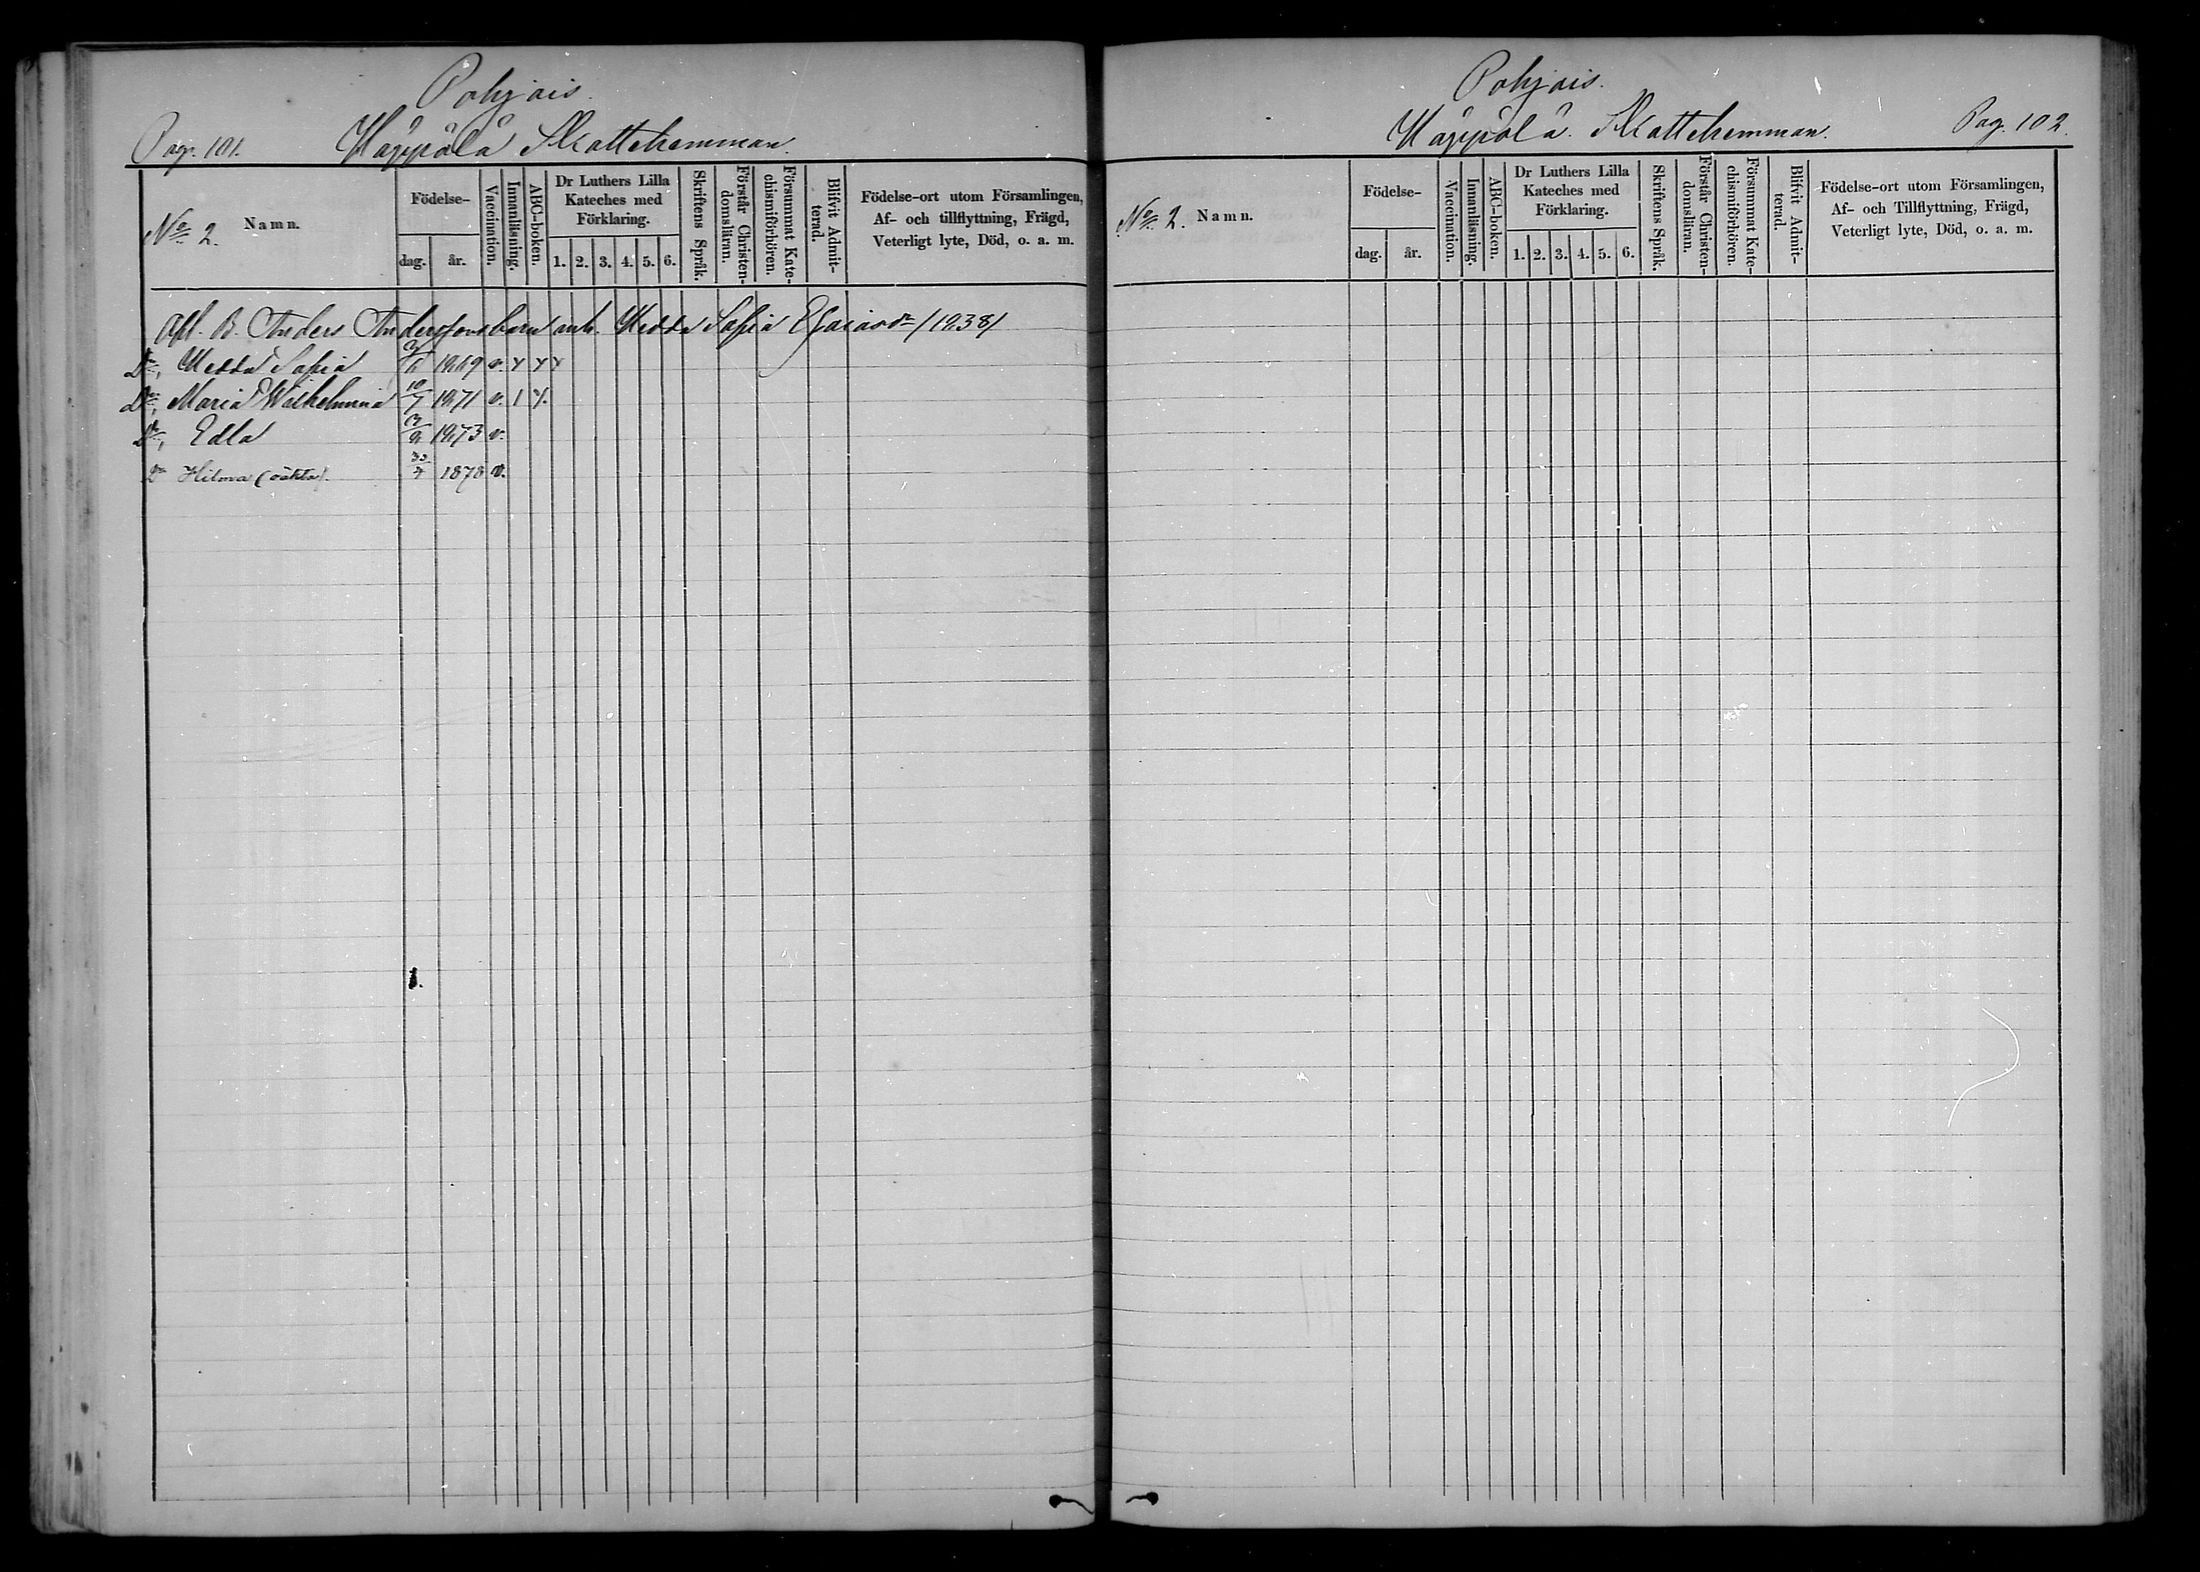 Pohjois.
Pag. 101. Häppölä Skattehemman.
No 2. Namn.
Födelse-
dag. år.
Vaccination.
Innanläsning.
ABC-boken.
Dr Luthers Lilla
Kateches med
Förklaring.
1. 2. 3. 4. 5. 6.
Skriftens Språk.
Förstår Christen-
domsläran.
Försummat Kate-
chismiförhören.
Blifvit Admit-
terad.
Födelse-ort utom Församlingen,
Af- och tillflyttning, Frägd,
Veterligt lyte, Död, o. a. m.
Afl. B. Anders Anderssons barn enk. Hedda Sofia Esaiasdr /1838/
Dr, Hedda Sofia 1869 v. x x x
Dr, Maria Wilhelmina 10/7 1871 v. 1 x.
Dr, Edla 1873 v.
Dr Hilma (oäkta). 30/7 1878 v.
Pohjois.
Häppölä. Skattehemman. Pag. 102.
No 2. Namn.
Födelse-
dag. år.
Vaccination.
Innanläsning.
ABC-boken.
Dr Luthers Lilla
Kateches med
Förklaring.
1. 2. 3. 4. 5. 6.
Skriftens Språk.
Förstår Christen-
domsläran.
Försummat Kate-
chismiförhören.
Blifvit Admit-
terad.
Födelse-ort utom Församlingen,
Af- och Tillflyttning, Frägd,
Veterligt lyte, Död, o. a. m.